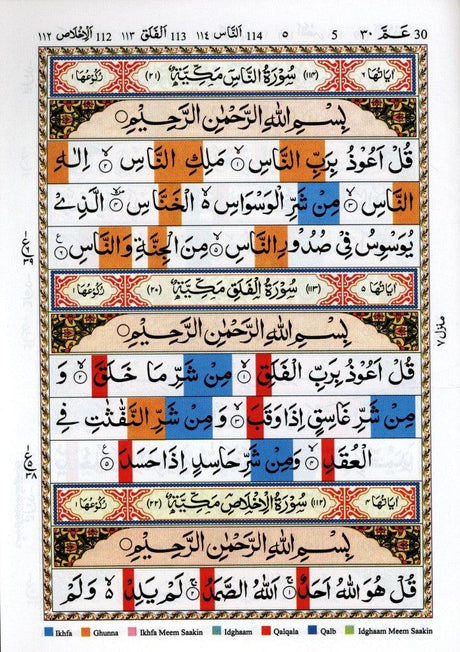 30 عَمَّ ٣٠ 5 ٥ 114 اَلنَّاس ١١٤ 113 اَلْفَلَق ١١٣ 112 اَلْاِخْلَاص ١١٢
اٰيَاتُهَا ٦ (١١٤) سُوْرَةُ النَّاسِ مَكِّيَّةٌ (٢١) رُكُوْعُهَا ١
بِسْمِ اللّٰهِ الرَّحْمٰنِ الرَّحِيْمِ
قُلْ اَعُوْذُ بِرَبِّ النَّاسِ ١ مَلِكِ النَّاسِ ٢ اِلٰهِ
النَّاسِ ٣ مِنْ شَرِّ الْوَسْوَاسِ ەۙ الْخَنَّاسِ ٤ الَّذِيْ
يُوَسْوِسُ فِيْ صُدُوْرِ النَّاسِ ٥ مِنَ الْجِنَّةِ وَالنَّاسِ ٦
اٰيَاتُهَا ٥ (١١٣) سُوْرَةُ الْفَلَقِ مَكِّيَّةٌ (٢٠) رُكُوْعُهَا ١
بِسْمِ اللّٰهِ الرَّحْمٰنِ الرَّحِيْمِ
قُلْ اَعُوْذُ بِرَبِّ الْفَلَقِ ١ مِنْ شَرِّ مَا خَلَقَ ٢ وَ
مِنْ شَرِّ غَاسِقٍ اِذَا وَقَبَ ٣ وَ مِنْ شَرِّ النَّفّٰثٰتِ فِي
الْعُقَدِ ٤ وَمِنْ شَرِّ حَاسِدٍ اِذَا حَسَدَ ٥
اٰيَاتُهَا ٤ (١١٢) سُوْرَةُ الْاِخْلَاصِ مَكِّيَّةٌ (٢٢) رُكُوْعُهَا ١
بِسْمِ اللّٰهِ الرَّحْمٰنِ الرَّحِيْمِ
قُلْ هُوَ اللّٰهُ اَحَدٌ ١ اَللّٰهُ الصَّمَدُ ٢ لَمْ يَلِدْ ەۙ وَلَمْ
منزل ٧
Ikhfa Ghunna Ikhfa Meem Saakin Idghaam Qalqala Qalb Idghaam Meem Saakin